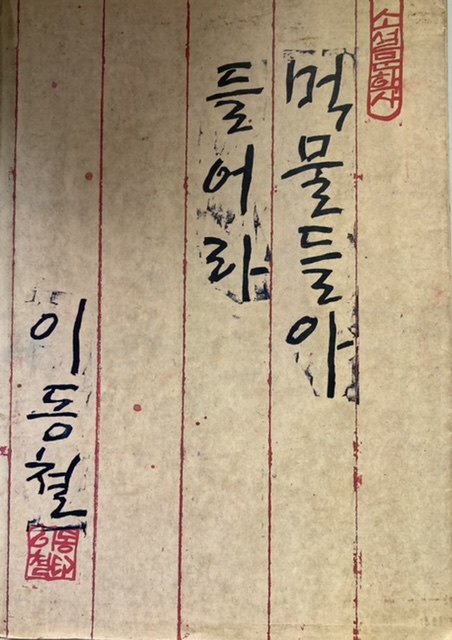 소설문학사
먹물들아
들어라
이동철